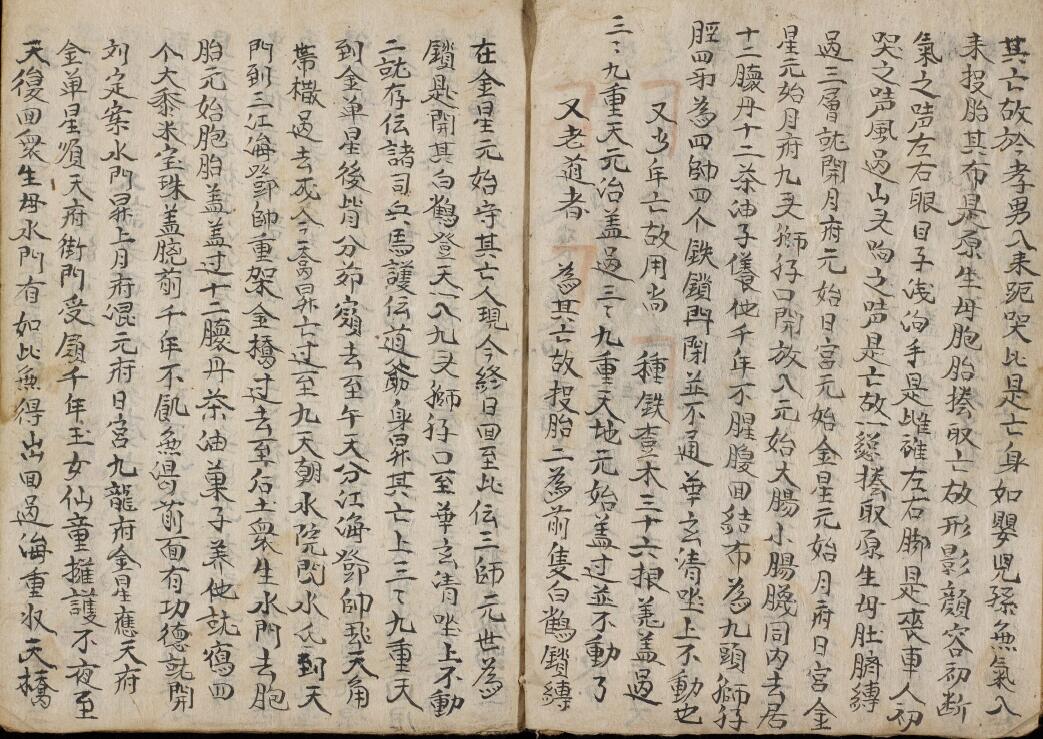 其亡故於孝男入来跪哭比是亡身如嬰児孫無氣入
来投胎其布是原生母胞胎揍取亡故形影顔容初断
氣之声左右眼日子浅泊手是雌確左右脚是喪車人初
哭之声風過山叉狗之声是亡故一總揍取原生母肚臍縛
過三層就閉月府元始日宮元始金星元始月府日宮金
星元始月府九叉獅仔口開放入元始大腸小腸腸同内去居
十二朦丹十二茶油子養他千年不腥腹回結布為九頭獅仔
脛四弔為四帥四个鉄鎖門閉並不通華玄清坐上不動也
又少年亡故用尚 種鉄查木三十六根羗盖過
三〻九重天元治盖過三〻九重天地元始盖过並不動了
又老道者 為其亡故投胎二為前隻白鶴鎖縛
在金星元始守其亡人現今終日回至比伝三師元世為
鎖匙開其白鶴登天一入九叉獅仔口至華玄清坐上不動
二就存伝諸司兵馬護伝道爺身昇其亡上三〻九重天
到金单星後背分茆嶺去至午天分江海鄧帥飛天角
帯橵過去或入今高昇亡过至九天朝水院門水氏到天
門到三江海鄧帥重架金橋过去至后土衆生水門去胞
胎元始胞胎盖盖过十二朦丹茶油菓子养他就寫四
个大黍米宝珠盖脘前千年不飢無渇前面有功德就開
列定案水門昇上月府混元府日宮九龍府金星應天府
金单星順天府衙門受嶺千年玉女仙童擁護不夜至
天後回衆生母水門有如比無得出回過海重収天橋